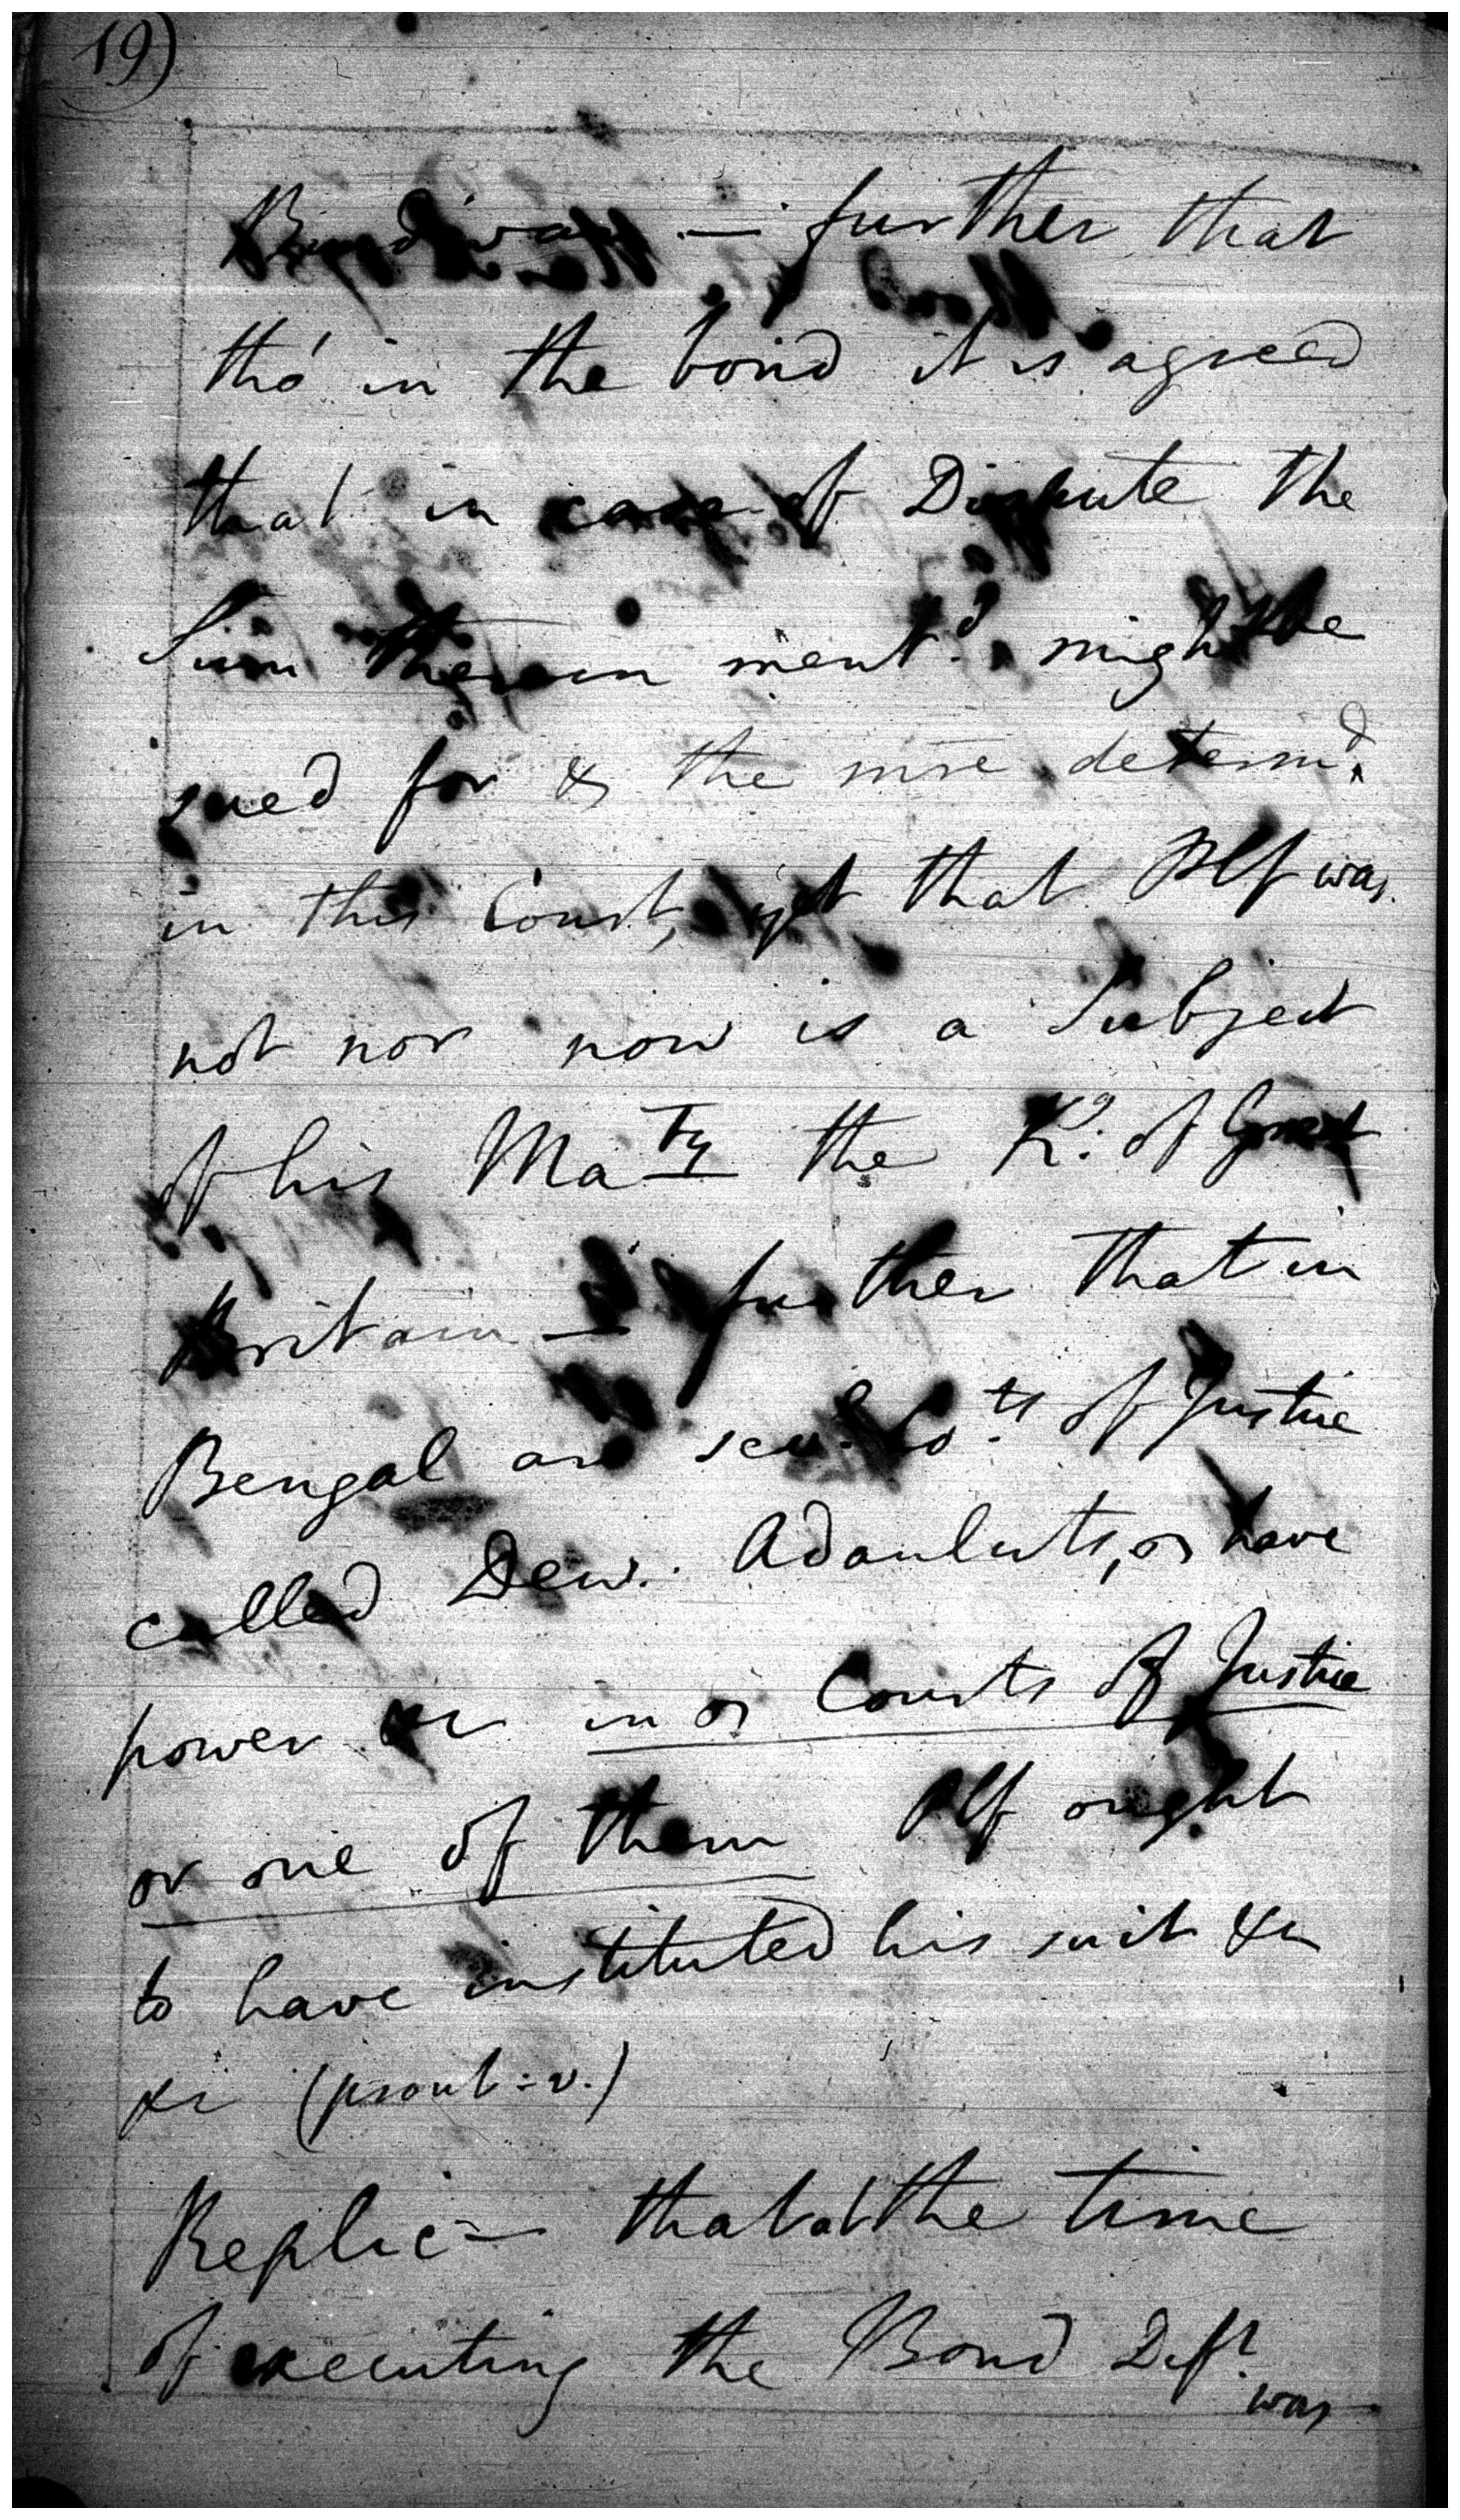 19)
Burdwan — further that
tho' in the bond it is agreed
that in case of Dispute the
Sum therein ment.d might be
sued for & the sme determ.d
in this Court, yet that Plf was
not nor now is a Subject
of his Ma.ty the K.g of Great
Britain — further that in
Bengal are sev.l Co.ts of Justice
called Dew. Adauluts, & have
power &c in & Courts of Justice
or one of them Plf ought
to have instituted his suit &c
&c (prout : v.)
Replic= that at the time
of executing the Bond Deft.
was